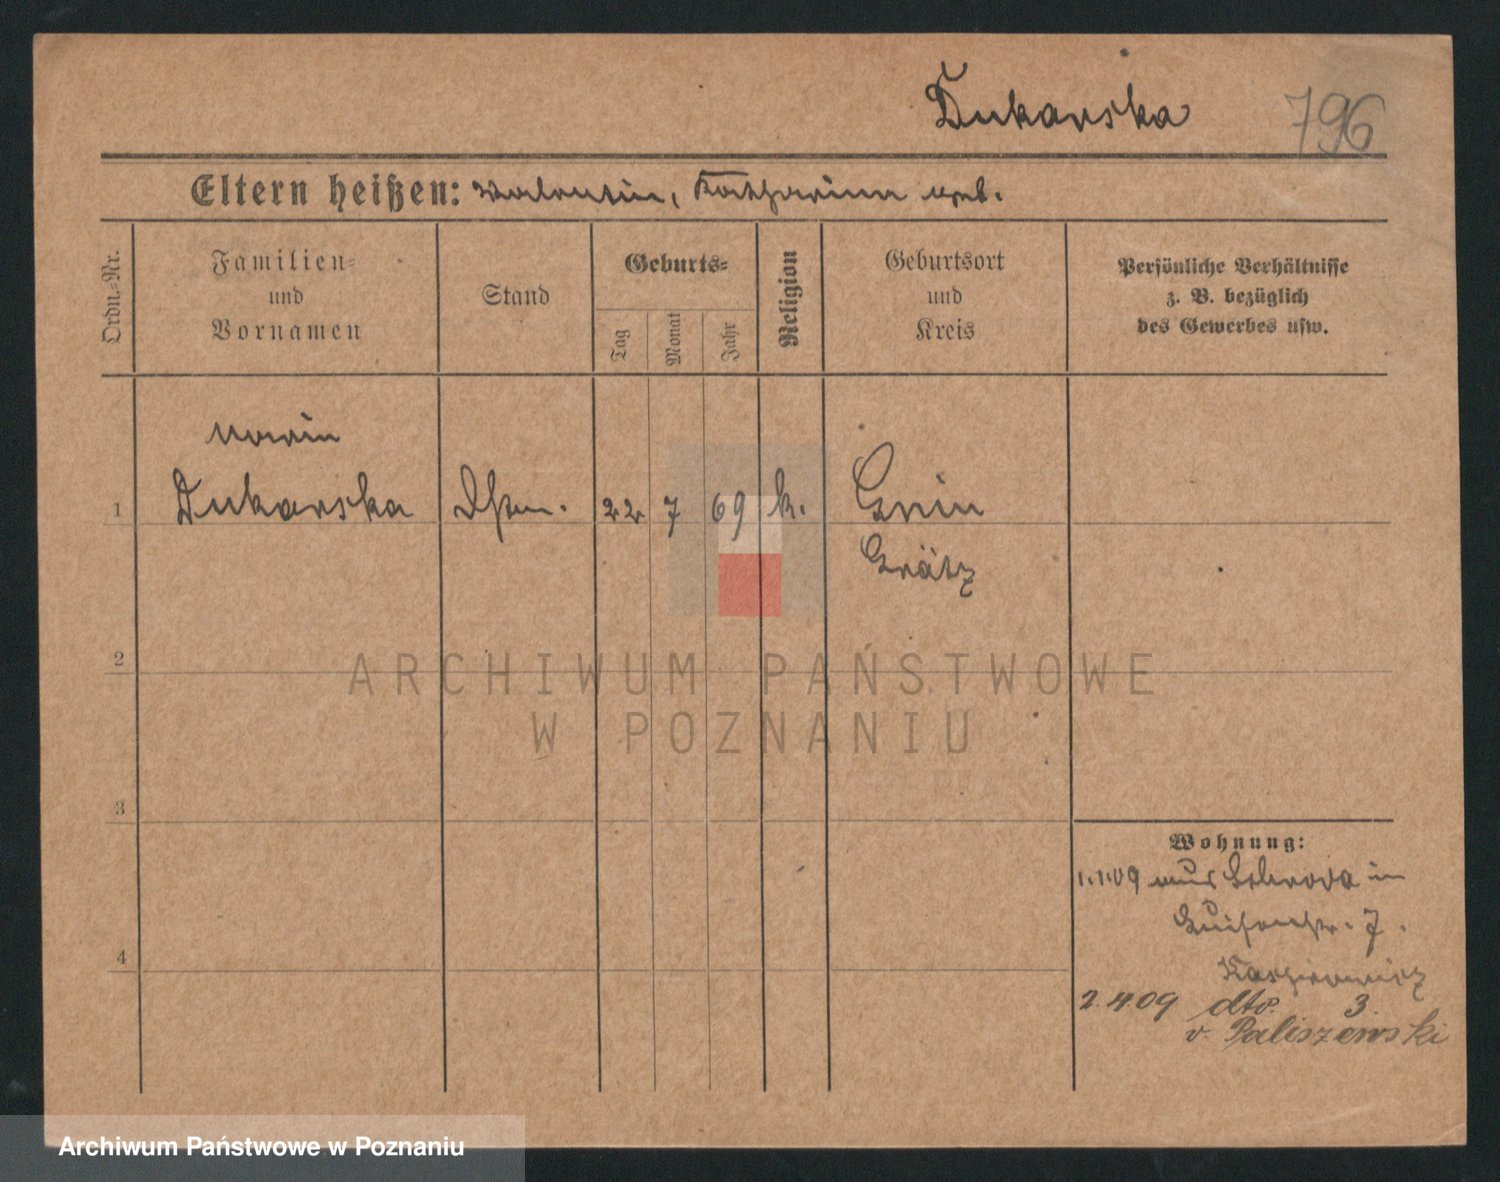 Dukarska 796
Eltern heißen: Valentin, Katharina geb.
Ordn.-Nr.
Familien-
und
Vornamen
Stand
Geburts-
Tag
Monat
Jahr
Religion
Geburtsort
und
Kreis
Persönliche Verhältnisse
z. B. bezüglich
des Gewerbes usw.
Maria
1 Dukarska 22 7 69 k.
Grätz
2
ARCHIWUM PAŃSTWOWE
W POZNANIU
3
Wohnung:
1.1.09 aus Schroda in
Luisenstr. 7.
4
2.4.09 dto. 3.
v. Paliszewski
Archiwum Państwowe w Poznaniu